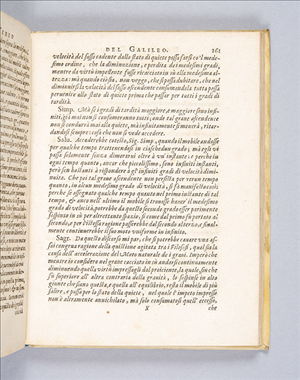 DEL GALILEO. 161
velocità del sasso cadente dallo stato di quiete passa farsi co'l mede-
simo ordine, che la diminuzione, e perdita dei medesimi gradi,
mentre da virtù impellente fusse ricacciato in su alla medesima al-
tezza: mà quando ciò sia, non veggo, che si possa dubitare, che nel
diminuirsi la velocità del sasso ascendente consumandola tutta possa
pervenire allo stato di quiete prima che passar per tutti i gradi di
tardità.
Simp. Mà se i gradi di tardità maggiore, e maggiore sono infini-
ti, già mai non si consumeranno tutti, onde tal grave ascendente
non si condurrà mai alla quiete, mà infinitamente si moverà, ritar-
dandosi sempre: cosa che non si vede accadere.
Salv. Accaderebbe cotesto, Sig. Simp., quando il mobile andasse
per qualche tempo trattenendosi in ciaschedun grado; mà egli vi
passa solamente senza dimorarvi oltre à un'instante; e perche in
ogni tempo quanto, ancor che piccolissimo, sono infiniti instanti,
però son bastanti à rispondere à gl' infiniti gradi di velocità dimi-
nuita. Che poi tal grave ascendente non persista per verun tempo
quanto, in alcun medesimo grado di velocità, si fà manifesto così:
perche se assegnato qualche tempo quanto nel primo instante di tal
tempo, & anco nell' ultimo il mobile si trovasse haver' il medesimo
grado di velocità, potrebbe da questo secondo grado esser parimente
sospinto in sù per altrettanto spazio, sì come dal primo fù portato al
secondo, e per l'istessa ragione passerebbe dal secondo al terzo, e final-
mente continuerebbe il suo moto uniforme in infinito.
Sagr. Da questo discorso mi par, che si potrebbe cavare una as-
sai congrua ragione della quistione agitata tra i Filosofi, qual sia la
causa dell' accelerazione del Moto naturale de i gravi. Imperò che
mentre io considero nel grave cacciato in sù andarsi continuamente
diminuendo quella virtù impressagli dal proiciente, la quale, sin che
fu superiore all' altra contraria della gravità, lo sospinse in alto
giunte che siano questa, e quella all' equilibrio, resta il mobile di più
salire, e passa per lo stato della quiete, nel quale l' impeto impresso
non è altramente annichilato, mà solo consumatosi quell' eccesso,
X che